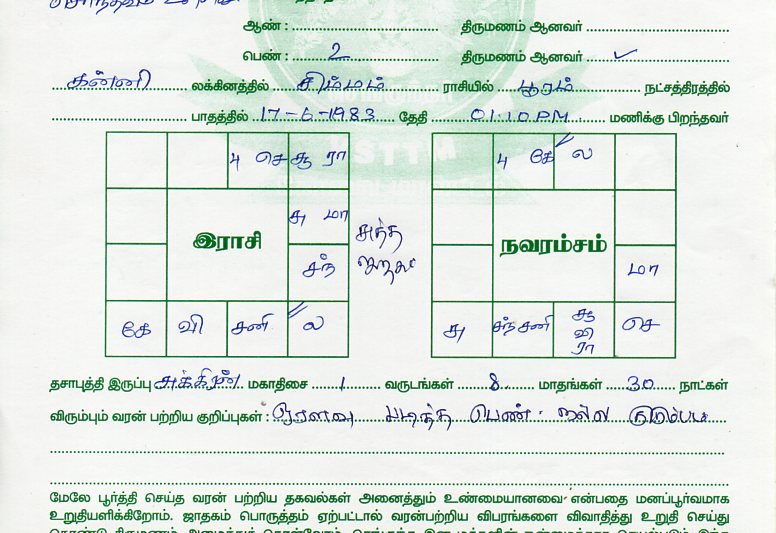 ஆண் : ........ திருமணம் ஆனவர் ........
பெண் : ... 2 ... திருமணம் ஆனவர் ... ✓ ...
கன்னி லக்கினத்தில் சிம்மம் ராசியில் பூரம் நட்சத்திரத்தில்
........ பாதத்தில் 17-6-1983 தேதி 01.10 PM மணிக்கு பிறந்தவர்
4 செ சூ ரா 4 கே ல
STTM
சு மா
இராசி நவரம்சம்
சந் மா
கே வி சனி ல சு சந் சனி சூ வி ரா செ
தசாபுத்தி இருப்பு மகாதிசை 1 வருடங்கள் 8 மாதங்கள் 30 நாட்கள்
விரும்பும் வரன் பற்றிய குறிப்புகள் : ஓரளவு படித்த பெண். நல்ல
மேலே பூர்த்தி செய்த வரன் பற்றிய தகவல்கள் அனைத்தும் உண்மையானவை என்பதை மனப்பூர்வமாக
உறுதியளிக்கிறோம். ஜாதகம் பொருத்தம் ஏற்பட்டால் வரன்பற்றிய விபரங்களை விவாதித்து உறுதி செய்து